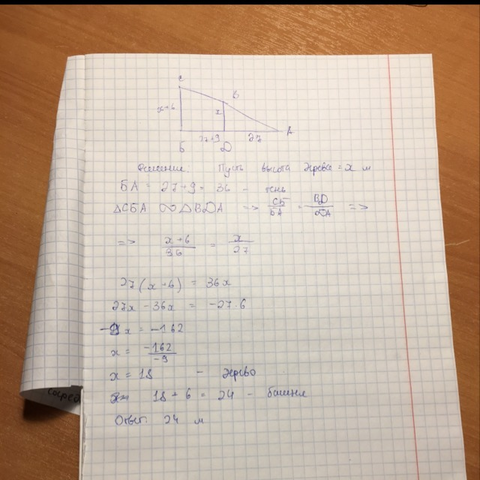 C
B
x+6
x
27+9
27
A
Б
D
Решение Пусть высота дерева = x м
БА = 27+9 = 36 - тень
ΔСБА ∾ ΔBDA => СБ/БА = BD/DA =>
=> x+6/36 = x/27
27(x+6) = 36x
27x - 36x = -27·6
-9x = -162
x = -162/-9
x = 18 - дерево
18 + 6 = 24 - башня
Ответ: 24 м